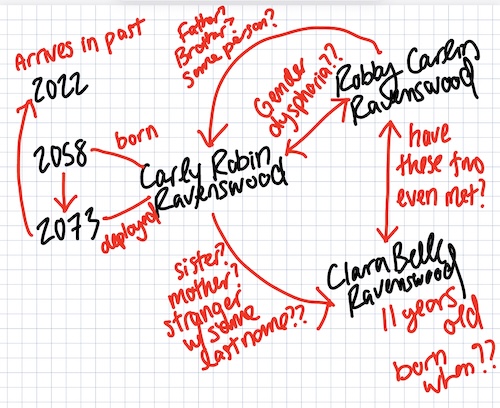 Arrives in past
2022
2058
2073
born
deployed
Carly Robin
Ravenswood
Father?
Brother?
Same person?
Gender
dysphoria??
Robby Carlin
Ravenswood
have
these two
even met?
sister?
mother?
stranger
w/ same
last name??
Clara Belle
Ravenswood
11 years
old
born
when??